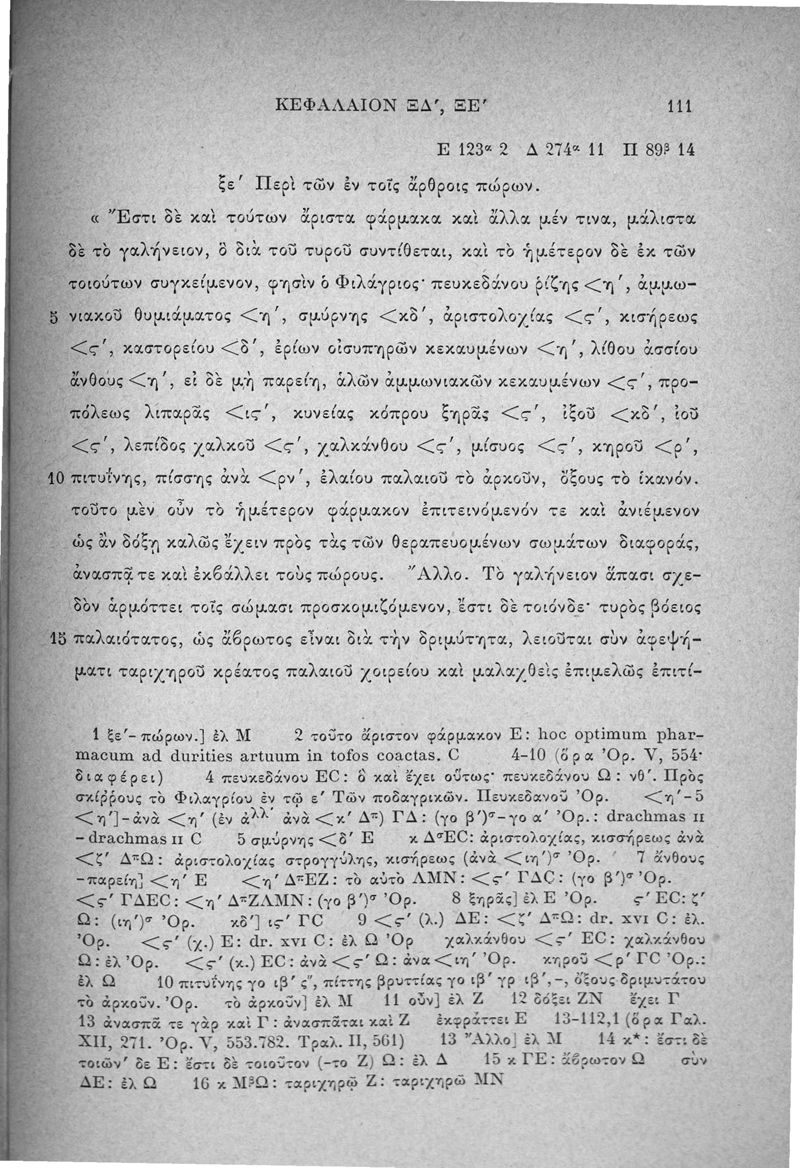 ΚΕΦΑΛΑΙΟΝ ΞΔʹ, ΞΕʹ 111
Ε 123α 2 Δ 274α 11 Π 89β 14
ξεʹ Περὶ τῶν ἐν τοῖς ἄρθροις πώρων.
« Ἔστι δὲ καὶ τούτων ἄριστα φάρμακα καὶ ἄλλα μέν τινα, μάλιστα
δὲ τὸ γαλήνειον, ὃ διὰ τοῦ τυροῦ συντίθεται, καὶ τὸ ἡμέτερον δὲ ἐκ τῶν
τοιούτων συγκείμενον, φησὶν ὁ Φιλάγριος· πευκεδάνου ῥίζης <ηʹ, ἀμμω-
5 νιακοῦ θυμιάματος <ηʹ, σμύρνης <κδʹ, ἀριστολοχίας <ϛʹ, κισήρεως
<ϛʹ, καστορείου <δʹ, ἐρίων οἰσυπηρῶν κεκαυμένων <ηʹ, λίθου ἀσσίου
ἄνθους <ηʹ, εἰ δὲ μὴ παρείη, ἁλῶν ἀμμωνιακῶν κεκαυμένων <ϛʹ, προ-
πόλεως λιπαρᾶς <ιϛʹ, κυνείας κόπρου ξηρᾶς <ϛʹ, ἰξοῦ <κδʹ, ἰοῦ
<ϛʹ, λεπίδος χαλκοῦ <ϛʹ, χαλκάνθου <ϛʹ, μίσυος <ϛʹ, κηροῦ <ρʹ,
10 πιτυΐνης, πίσσης ἀνὰ <ρνʹ, ἐλαίου παλαιοῦ τὸ ἀρκοῦν, ὄξους τὸ ἱκανόν.
τοῦτο μὲν οὖν τὸ ἡμέτερον φάρμακον ἐπιτεινόμενόν τε καὶ ἀνιέμενον
ὡς ἂν δόξῃ καλῶς ἔχειν πρὸς τὰς τῶν θεραπευομένων σωμάτων διαφοράς,
ἀνασπᾷ τε καὶ ἐκβάλλει τοὺς πώρους. Ἄλλο. Τὸ γαλήνειον ἅπασι σχε-
δὸν ἁρμόττει τοῖς σώμασι προσκομιζόμενον, ἔστι δὲ τοιόνδε· τυρὸς βόειος
15 παλαιότατος, ὡς ἄβρωτος εἶναι διὰ τὴν δριμύτητα, λειοῦται σὺν ἀφεψή-
ματι ταριχηροῦ κρέατος παλαιοῦ χοιρείου καὶ μαλαχθεὶς ἐπιμελῶς ἐπιτί-
1 ξεʹ- πώρων.] ἐλ Μ 2 τοῦτο ἄριστον φάρμακον Ε: hoc optimum phar-
macum ad durities artuum in tofos coactas. C 4-10 (ὅρα Ὀρ. V, 554·
διαφέρει) 4 πευκεδάνου ΕC: ὃ καὶ ἔχει οὕτως· πευκεδάνου Ω: νθʹ. Πρὸς
σκίῤῥους τὸ Φιλαγρίου ἐν τῷ εʹ Τῶν ποδαγρικῶν. Πευκεδανοῦ Ὀρ. <ηʹ-5
<ηʹ]-ἀνὰ <ηʹ (ἐν ἀλλ ἀνὰ <κʹ Δπ) ΓΔ: (γο βʹ)σ-γο αʹ Ὀρ.: drachmas II
- drachmas II C 5 σμύρνης <δʹ Ε κ ΔσΕC: ἀριστολοχίας, κισσήρεως ἀνὰ
<ζʹ ΔπΩ: ἀριστολοχίας στρογγύλης, κισήρεως (ἀνὰ <ιηʹ)σ Ὀρ. 7 ἄνθους
-παρείη] <ηʹ Ε <ηʹ ΔπΕΖ: τὸ αὐτὸ ΛΜΝ: <ϛʹ ΓΔC: (γο βʹ)σ Ὀρ.
<ϛʹ ΓΔΕC: <ηʹ ΔπΖΛΜΝ: (γο βʹ)σ Ὀρ. 8 ξηρᾶς] ἐλ Ε Ὀρ. ϛʹ ΕC: ζʹ
Ω: (ιηʹ)σ Ὀρ. κδʹ] ιϛʹ ΓC 9 <ϛʹ (λ.) ΔΕ: <ζʹ ΔπΩ: dr. XVI C: ἐλ.
Ὀρ. <ϛʹ (χ.) Ε: dr. XVI C: ἐλ Ω Ὀρ χαλκάνθου <ϛʹ ΕC: χαλκάνθου
Ω: ἐλ Ὀρ. <ϛʹ (κ.) ΕC: ἀνὰ <ϛʹ Ω: ἀνα <ιηʹ Ὀρ. κηροῦ <ρʹ ΓC Ὀρ.:
ἐλ Ω 10 πιτυΐνης γο ιβʹ ϛʺ, πίττης βρυττίας γο ιβʹ γρ ιβʹ,-, ὄξους δριμυτάτου
τὸ ἀρκοῦν. Ὀρ. τὸ ἀρκοῦν] ἐλ Μ 11 οὖν] ἐλ Ζ 12 δόξει ΖΝ ἔχει Γ
13 ἀνασπᾶ τε γὰρ καὶ Γ: ἀνασπᾶται καὶ Ζ ἐκφράττει Ε 13-112,1 (ὅρα Γαλ.
XII, 271. Ὀρ. V, 553.782. Τραλ. II, 561) 13 Ἄλλο] ἐλ Μ 14 κ*: ἔστι δὲ
τοιῶνʹ δε Ε: ἔστι δὲ τοιοῦτον (-το Ζ) Ω: ἐλ Δ 15 κ ΓΕ: ἄβρωτον Ω σὺν
ΔΕ: ἐλ Ω 16 κ ΜβΩ: ταριχηρῷ Ζ: ταριχηρῶ ΜΝ